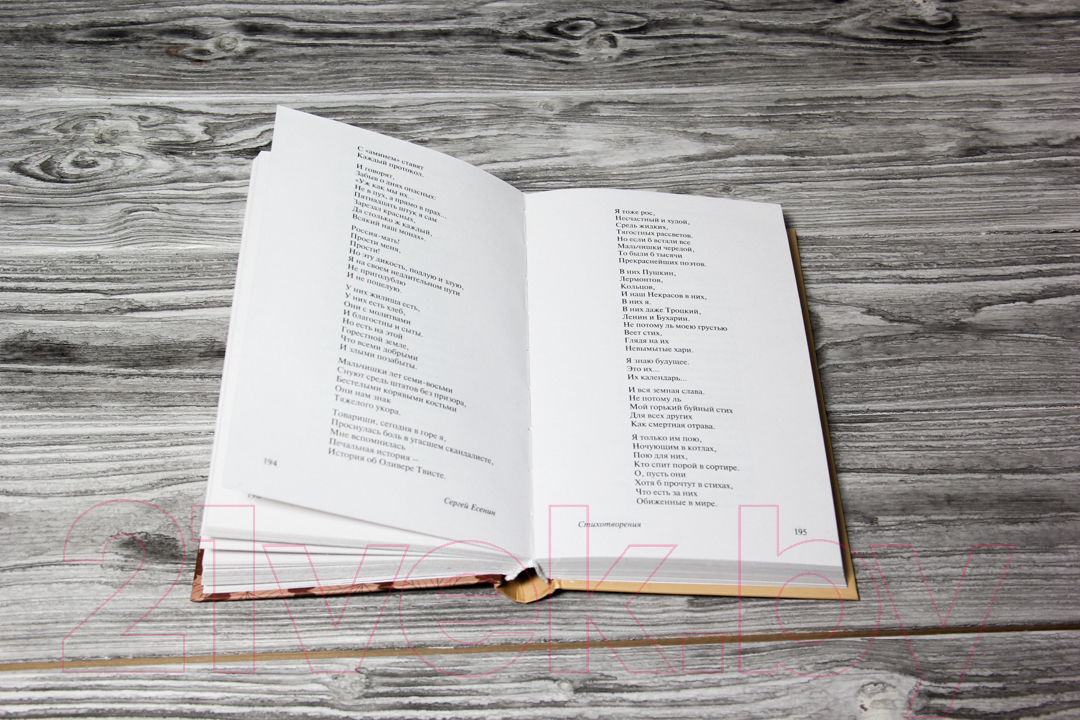 С «аминем» ставят
Каждый протокол.
И говорят,
Забыв о днях опасных:
«Уж как мы их...
Не в пух, а прямо в прах...
Пятнадцать штук я сам
Зарезал красных,
Да столько ж каждый,
Всякий наш монах».
Россия-мать!
Прости меня,
Прости!
Но эту дикость, подлую и злую,
Я на своем недлительном пути
Не приголублю
И не поцелую.
У них жилища есть,
У них есть хлеб,
Они с молитвами
И благостны и сыты.
Но есть на этой
Горестной земле,
Что всеми добрыми
И злыми позабыты.
Мальчишки лет семи-восьми
Снуют средь штатов без призора,
Бестелыми корявыми костьми
Они нам знак
Тяжелого укора.
Товарищи, сегодня в горе я,
Проснулась боль в угасшем скандалисте,
Мне вспомнилась
Печальная история —
История об Оливере Твисте.
194
Сергей Есенин
Я тоже рос,
Несчастный и худой,
Средь жидких,
Тягостных рассветов.
Но если б встали все
Мальчишки чередой,
То были б тысячи
Прекраснейших поэтов.
В них Пушкин,
Лермонтов,
Кольцов,
И наш Некрасов в них,
В них я.
В них даже Троцкий,
Ленин и Бухарин.
Не потому ль моею грустью
Веет стих,
Глядя на их
Невымытые хари.
Я знаю будущее.
Это их...
Их календарь...
И вся земная слава.
Не потому ль
Мой горький буйный стих
Для всех других
Как смертная отрава.
Я только им пою,
Ночующим в котлах,
Пою для них,
Кто спит порой в сортире.
О, пусть они
Хотя б прочтут в стихах,
Что есть за них
Обиженные в мире.
Стихотворения
195
21vek.by